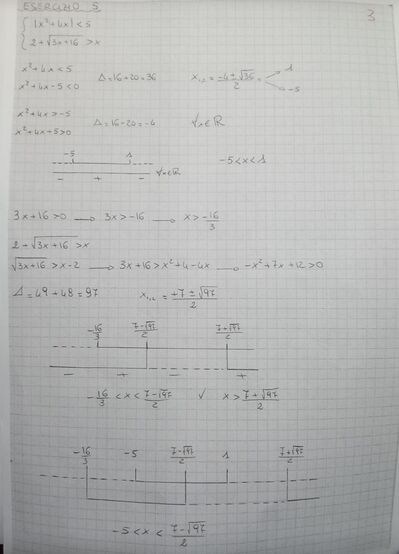 ESERCIZIO 5
3
|x²+4x|<5
2+√3x+16 >x
x²+4x<5
x²+4x-5<0
Δ=16+20=36
x₁,₂ = -4±√36 / 2 = 1
-5
x²+4x>-5
x²+4x+5>0
Δ=16-20=-4
∀x∈ℝ
-5 1
∀x∈ℝ
- + -
-5<x<1
3x+16>0 → 3x>-16 → x>-16/3
2+√3x+16 >x
√3x+16 >x-2 → 3x+16>x²+4-4x → -x²+7x+12>0
Δ=49+48=97 x₁,₂ = +7±√97 / 2
-16/3 7-√97/2 7+√97/2
- + - +
-16/3 <x< 7-√97/2 ∨ x> 7+√97/2
-16/3 -5 7-√97/2 1 7+√97/2
-5<x< 7-√97/2